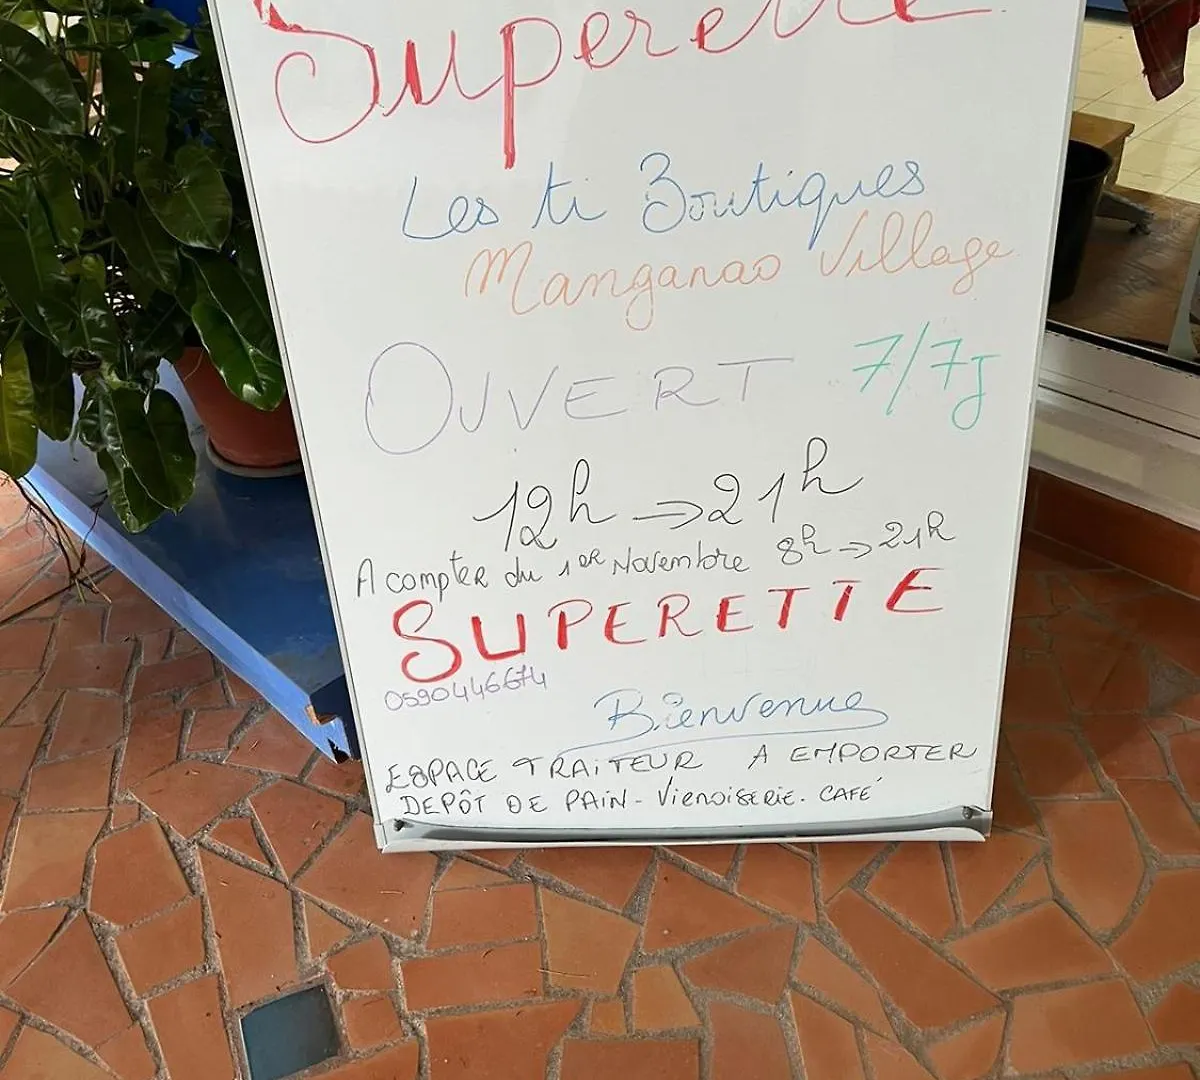 Superette
Les ti Boutiques
Manganao Village
OUVERT 7/7J
12h → 21h
A compter du 1ER Novembre 8h → 21h
SUPERETTE
0590446674
Bienvenue
ESPACE TRAITEUR A EMPORTER
DEPÔT DE PAIN - VIENOISERIE. CAFÉ